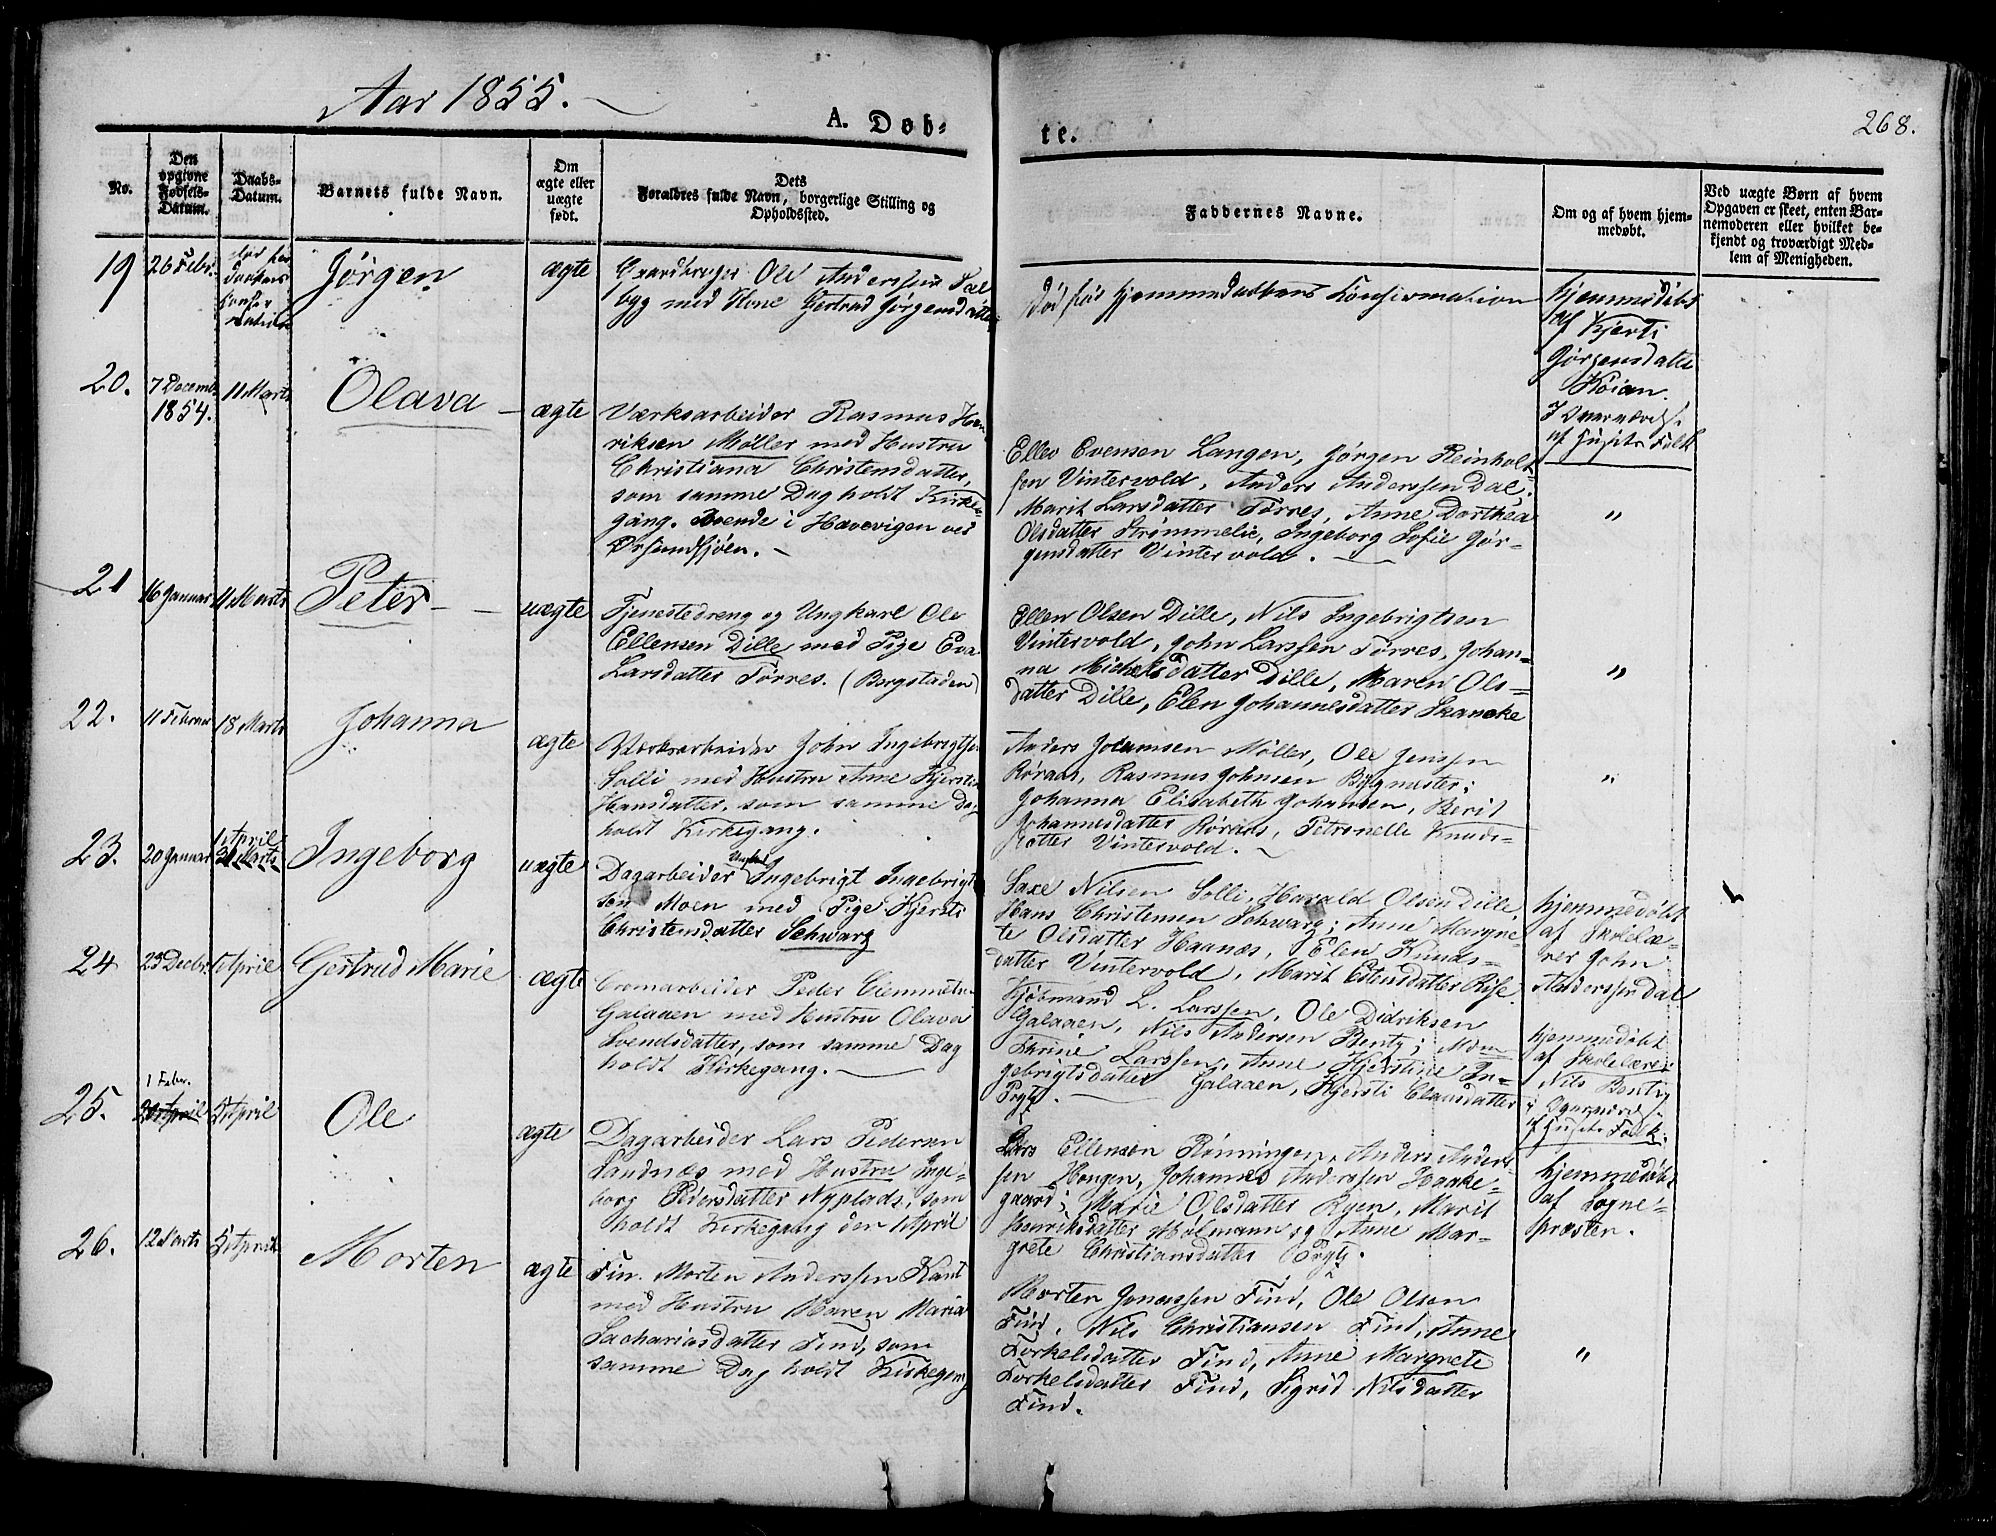 Aar 1855.
A. Döb-
te.
268.
No.
Den
opgivne
Fødsels-
Datum.
Daabs-
Datum.
Barnets fulde Navn.
Om
ægte eller
uægte
født.
Dets
Forældres fulde Navn, borgerlige Stilling og
Opholdssted.
Faddernes Navne.
Om og af hvem hjem-
medøbt.
Ved uægte Børn af hvem
Opgaven er skeet, enten Bar-
nemoderen eller hvilket be-
kjendt og troværdigt Med-
lem af Menigheden.
19
26 Febr.
død før
Daabens
Jørgen
ægte
Gaardbruger Ole Anderssen Gal
med Kone Gertrud Jørgensdatter
Død før Hjemmedaabens Konfirmation
Hjemmedøbt
af Kjersti
Jørgensdatter
20.
7 Decemb.
1854.
11 Marts
Olava
ægte
Værksarbeider Rasmus Hen-
riksen Møller med Hustru
Christiana Christensdatter,
som samme Dag holdt Kirke-
gang. Boende i Havevigen ved
Ørsundsjøen.
Ellev Evensen Langen, Jørgen Reinholt-
sen Vintervold, Anders Anderssen Dal;
Marit Larsdatter Tørres, Anne Dorthea
Olsdatter Strømmelie, Ingeborg Sofie Jør-
gensdatter Vintervold.
"
21
16 Januar
11 Marts
Peter
uægte
Tjenestedreng og Ungkarl Ole
Ellensen Dille med Pige Eva
Larsdatter Tørres. (Bergstaden)
Ellen Olsen Dille, Nils Ingebrigtsen
Vintervold, John Larssen Tørres, Johan-
na Michelsdatter Dille, Maren Ols-
datter Dille, Elen Johannesdatter Skancke
"
22.
11 Februar
18 Marts
Johanna
ægte
Værksarbeider John Ingebrigtsen
Solli med Hustru Anne Kjerstine
Hansdatter, som samme Dag
holdt Kirkegang.
Anders Johansen Møller, Ole Jenssen
Røraas, Rasmus Johnsen Bygmester;
Johanna Elisabeth Johansen, Berit
Johannesdatter Røraas, Petronelle Knuds-
datter Vintervold.
"
23.
20 Januar
1 April
Ingeborg
uægte
Dagarbeider Ingebrigt Ingebrigt-
sen Moen med Pige Kjersti
Christensdatter Schwarz
Saxe Nilsen Solli, Harald Olsen Dille,
Hans Christensen Schwarz; Anne Margre-
te Olsdatter Haanæs, Elen Knuds-
datter Vintervold, Marit Estensdatter Rise.
Hjemmedøbt
af Skolelæ-
rer John
Anderssen Dal
24
23 Decbr.
1 April
Gertrud Marie
ægte
Cromarbeider Peder Clemmetsen
Galaaen med Hustru Olava
Svendsdatter, som samme Dag
holdt Kirkegang.
Kjøbmand L. Larssen, Ole Didriksen
Galaaen, Nils Andersen Bentz;
Thrine Larssen, Anne Kjerstine In-
gebrigtsdatter Galaaen, Kjersti Clausdatter
Prytz.
Hjemmedøbt
af Skolelærer
Nils Bentz
25.
1 Febr.
5 April
Ole
ægte
Dagarbeider Lars Pedersen
Sandnæs med Hustru Inge-
borg Pedersdatter Nyplads, som
holdt Kirkegang den 1 April
Lars Ellensen Rønningen, Anders Anders-
sen Hongen, Johannes Anderssen Haake-
gaard; Marie Olsdatter Ryen, Marit
Henriksdatter Mølmann og Anne Mar-
grete Christiansdatter Prytz.
Hjemmedøbt
af Sogne-
præsten.
26.
12 Marts
5 April
Morten
ægte
Fin. Morten Anderssen Kant
med Hustru Maren Maria
Sachariasdatter Find, som
samme Dag holdt Kirkegang
Morten Jonassen Find, Ole Olsen
Find, Nils Christiansen Find, Anne
Torkelsdatter Find, Anne Margrete
Torkelsdatter Find, Sigrid Nilsdatter
Find.
"